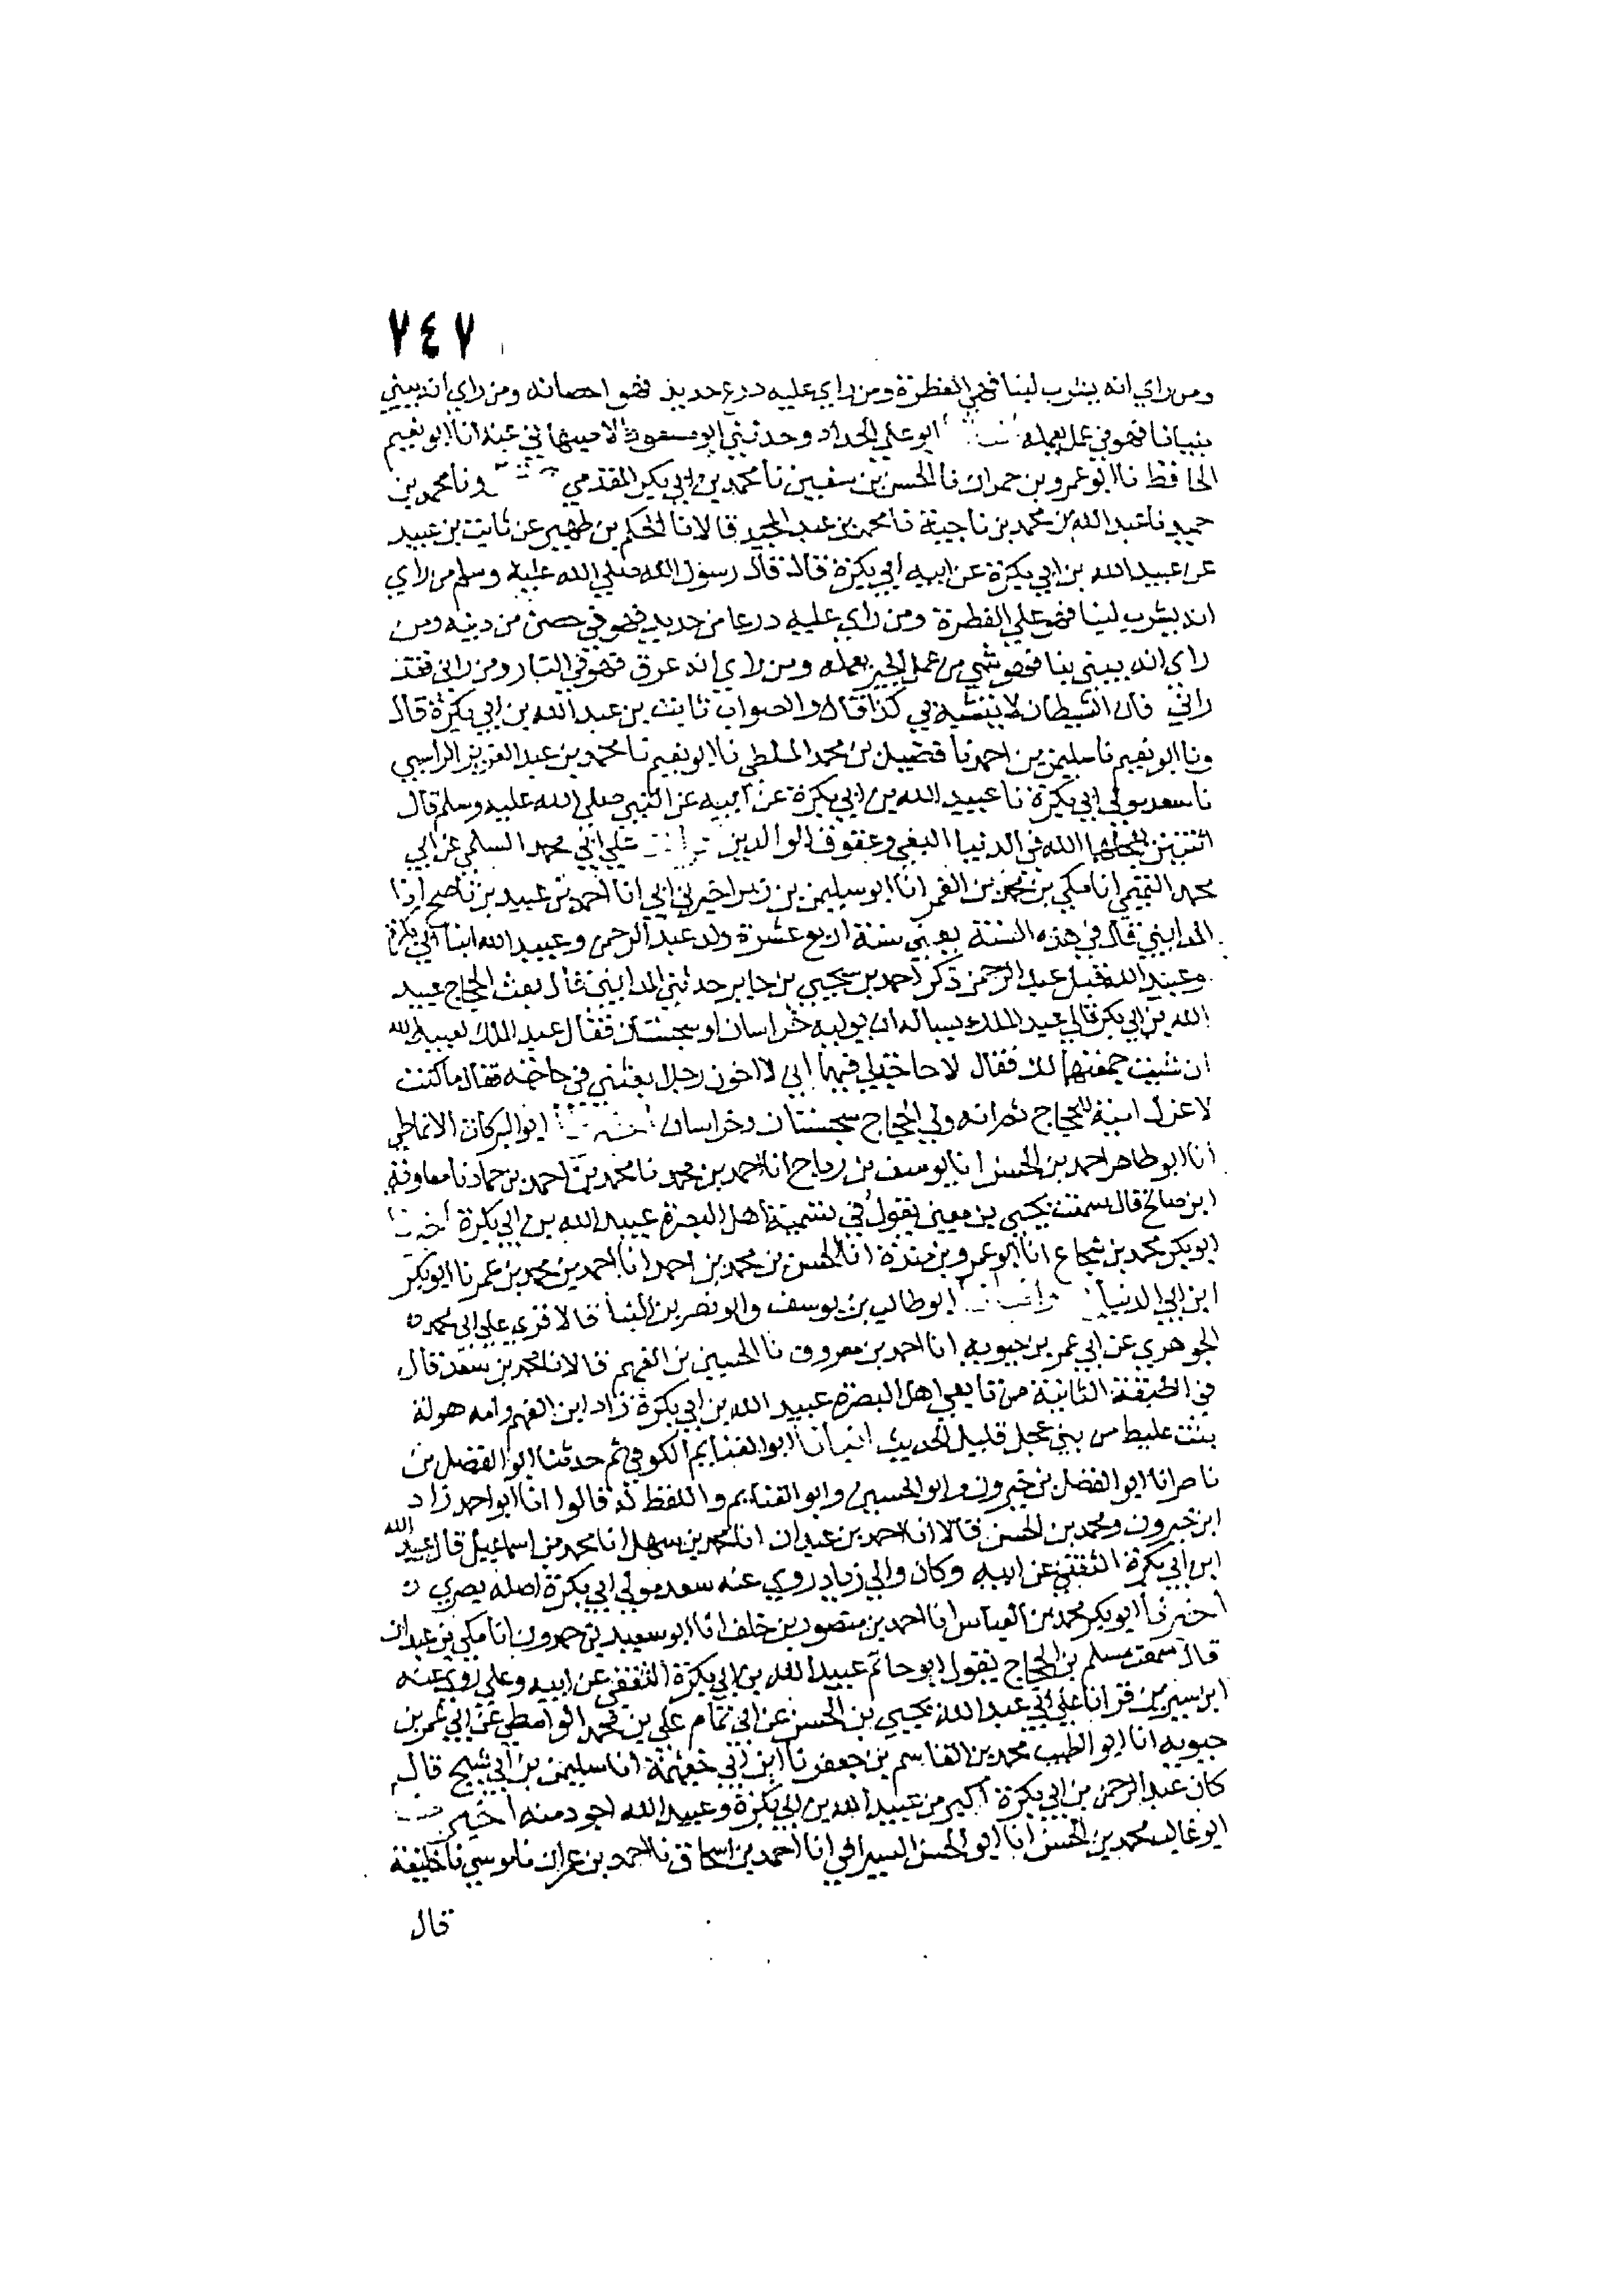 ٧٤٧
ومن راي انه يشرب لبنا فهي الفطرة ومن راي عليه درع حديد فهو احصانه ومن راي انه يبني
بنيانا فهو في عمل يعمله ابو علي الحداد وحدثني ابو مسعود الاصبهاني عنه انا ابو نعيم
الحافظ نا ابو عمرو بن حمدان نا الحسن بن سفين نا محمد بن ابي بكر المقدمي ونا محمد بن
حميد نا عبد الله بن محمد بن ناجية نا محمد بن عبد المجيد قالا نا الحكم بن ظهير عن ثابت بن عبيد
عن عبيد الله بن ابي بكرة عن ابيه ابي بكرة قال قال رسول الله صلي الله عليه وسلم من راي
انه يشرب لبنا فهو علي الفطرة ومن راي عليه درعا من حديد فهو في حصن من دينه ومن
راي انه يبني بنا فهو شي من عمل الخير يعمله ومن راي انه غرق فهو في النار ومن راني فقد
راني فان الشيطان لا يتشبه بي كذا قال والصواب ثابت بن عبد الله بن ابي بكرة قال
ونا ابو نعيم نا سليمن بن احمد نا فضيل بن محمد الملطي نا ابو نعيم نا محمد بن عبد العزيز الراسبي
نا سعد مولي ابي بكرة نا عبيد الله بن ابي بكرة عن ابيه عن النبي صلي الله عليه وسلم قال
اثنتين يعجلهما الله في الدنيا البغي وعقوق الوالدين قرات علي ابي محمد السلمي عن ابي
محمد التميمي انا مكي بن محمد بن الغمر انا ابو سليمن بن زبر اخبرني ابي انا احمد بن عبيد بن ناصح انا
المدايني قال في هذه السنة يعني سنة اربع عشرة ولد عبد الرحمن وعبيد الله ابنا ابي بكرة
وعبيد الله قبل عبد الرحمن ذكر احمد بن يحيي بن جابر حدثني المدايني قال بعث الحجاج عبيد
الله بن ابي بكرة الي عبد الملك يساله ان يوليه خراسان او سجستان فقال عبد الملك لعبيد الله
ان شيت جمعتهما لك فقال لا حاجة لي فيهما اني لا اخون رجلا بعثني في حاجته فقال ما كنت
لاعزل امية للحجاج ثم انه ولي الحجاج سجستان وخراسان ابو البركات الانماطي
انا ابو طاهر احمد بن الحسن انا يوسف بن رباح انا احمد بن محمد نا محمد بن احمد بن حماد نا معاوية
ابن صالح قال سمعت يحيي بن معين يقول في تسمية اهل البصرة عبيد الله بن ابي بكرة اخبرنا
ابو بكر محمد بن شجاع انا ابو عمرو بن مندة انا الحسن بن محمد بن احمد انا احمد بن محمد بن عمر نا ابو بكر
ابن ابي الدنيا ابو طالب بن يوسف وابو نصر بن البنا قالا قري علي ابي محمد
الجوهري عن ابي عمر بن حيويه انا احمد بن معروف نا الحسين بن الفهم قالا نا محمد بن سعد قال
في الطبقة الثانية من تابعي اهل البصرة عبيد الله بن ابي بكرة زاد ابن الفهم وامه هولة
بنت غليظ من بني عجل قليل الحديث انبانا ابو الغنايم الكوفي ثم حدثنا ابو الفضل بن
ناصر انا ابو الفضل بن خيرون وابو الحسين وابو الغنايم واللفظ له قالوا انا ابو احمد زاد
ابن خيرون ومحمد بن الحسن قالا انا احمد بن عبدان انا محمد بن سهل انا محمد بن اسماعيل قال عبيد الله
ابن ابي بكرة الثقفي عن ابيه وكان والي زياد روي عنه سعد مولي ابي بكرة اصله بصري
اخبرنا ابو بكر محمد بن العباس انا احمد بن منصور بن خلف انا ابو سعيد بن حمدون انا مكي بن عبدان
قال سمعت مسلم بن الحجاج يقول ابو حاتم عبيد الله بن ابي بكرة الثقفي عن ابيه وعلي روي عنه
ابن سيرين قرانا علي ابي عبد الله يحيي بن الحسن عن ابي تمام علي بن محمد الواسطي عن ابي عمر بن
حيويه انا ابو الطيب محمد بن القاسم بن جعفر نا ابن ابي خيثمة انا سليمن بن ابي شيخ قال
كان عبد الرحمن بن ابي بكرة اكبر من عبيد الله بن ابي بكرة وعبيد الله اجود منه اخبرنا
ابو غالب محمد بن الحسن انا ابو الحسن السيرافي انا احمد بن اسحاق نا احمد بن عمران نا موسي نا خليفة
قال